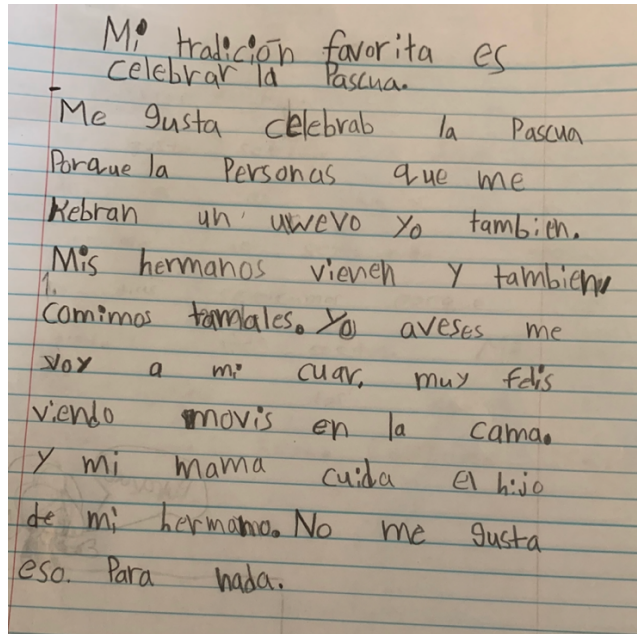 Mi tradición favorita es
celebrar la Pascua.
Me gusta celebrab la Pascua
Porque la Personas que me
Kebran un uwevo yo tambien.
Mis hermanos vienen y tambien
1.
comimos tamales. Yo aveses me
voy a mi cuar, muy felis
viendo movis en la cama.
Y mi mama cuida el hijo
de mi hermamo. No me gusta
eso. Para nada.